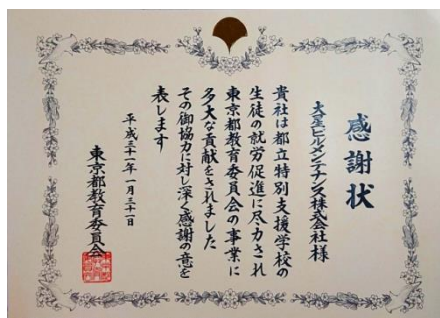 感謝状
大星ビルメンテナンス株式会社様
貴社は都立特別支援学校の
生徒の就労促進に尽力され
東京都教育委員会の事業に
多大な貢献をされました
その御協力に対し深く感謝の意を
表します
平成三十一年一月三十一日
東京都教育委員会